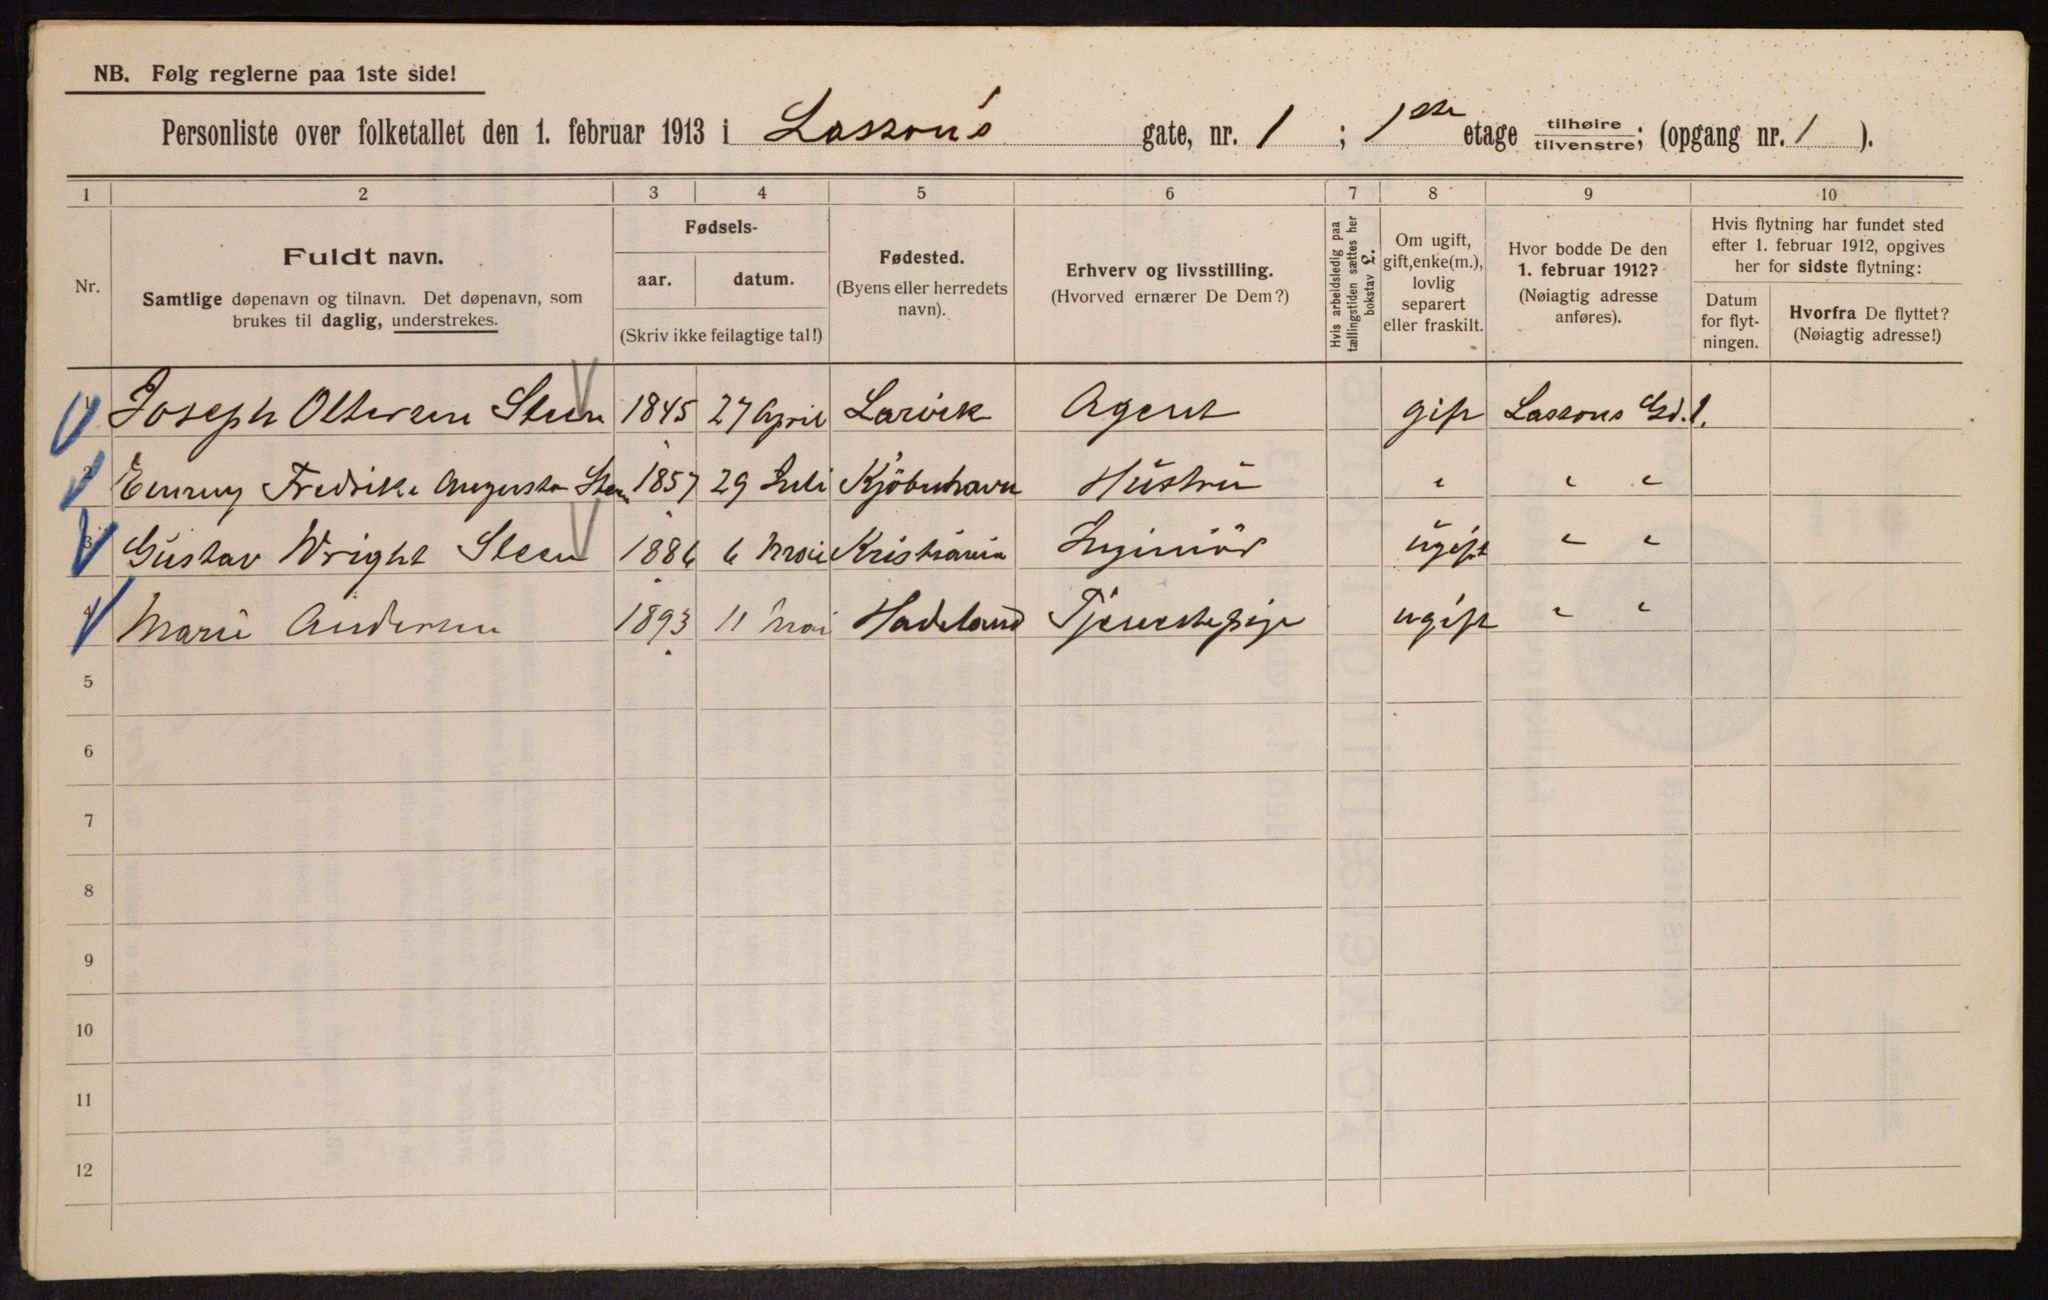 NB. Følg reglerne paa 1ste side!
Personliste over folketallet den 1. februar 1913 i Lassons gate, nr. 1 ; 1ste etage tilhøire tilvenstre; (opgang nr. 1 ).
1 2 3 4 5 6 7 8 9 10
Nr.
Fuldt navn.
Samtlige døpenavn og tilnavn. Det døpenavn, som
brukes til daglig, understrekes.
Fødsels-
aar. datum.
(Skriv ikke feilagtige tal!)
Fødested.
(Byens eller herredets
navn).
Erhverv og livsstilling.
(Hvorved ernærer De Dem?)
Hvis arbeidsledig paa
tællingstiden sættes her
bokstav L.
Om ugift,
gift, enke(m.),
lovlig
separert
eller fraskilt.
Hvor bodde De den
1. februar 1912?
(Nøiagtig adresse
anføres).
Hvis flytning har fundet sted
efter 1. februar 1912, opgives
her for sidste flytning:
Datum
for flyt-
ningen.
Hvorfra De flyttet?
(Nøiagtig adresse!)
1 Joseph Oltersen Steen 1845 27 April Larvik Agent gift Lassons Gd. 1.
2 Emmy Fredrike Augusta Steen 1857 29 Juli Kjöbenhavn Hustru " " "
3 Gustav Wright Steen 1886 6 Mai Kristiania Ingeniör ugift " "
4 Marie Andersen 1893 11 Mai Hadeland Tjenestepige ugift " "
5
6
7
8
9
10
11
12